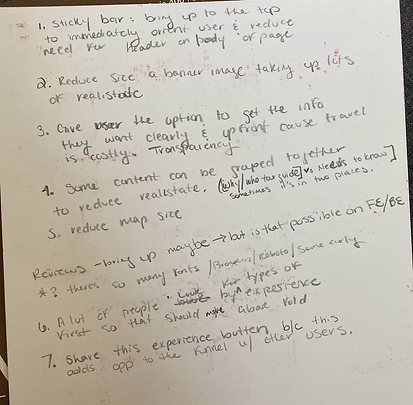 1. Sticky bar: bring up to the top
to immediately orient user & reduce
need for header on body of page
2. Reduce size a banner image taking up lots
of realistate
3. Give user the option to get the info
they want clearly & upfront cause travel
is costly. Transparency
4. Some content can be grouped together
to reduce realestate. (Why/who tar guide] vs Needs to know]
sometimes it's in two places.
5. reduce map size
Reviews - bring up maybe → but is that possible on FE/BE
*? there's so many fonts / / Roboto / Some curly
6. A lot of people look for types of
first so that should move above fold by experience
7. Share this experience button b/c this
adds opp to the funnel w/ other users.